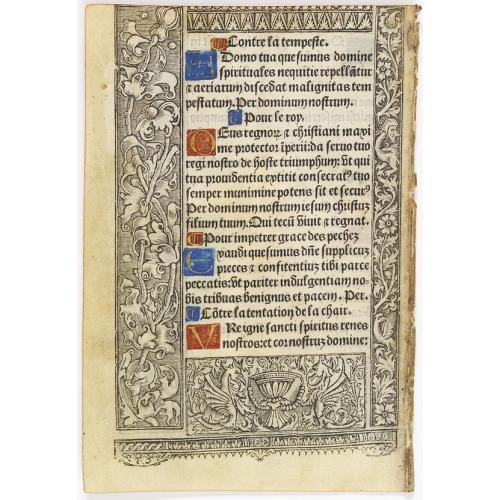 Contre la tempeste.
A Domo tua quesumus domine
spirituales nequitie repellãtur
⁊ aeriarum discedat malignitas tem
pestatum. Per dominum nostrum.
Pour le roy.
Deus regnorꝫ ⁊ christiani maxi
me protector ĩperii: da seruo tuo
regi nostro de hoste triumphum: vt qui
tua prouidentia extitit consecratꝰ tuo
semper munimine potens sit et securꝰ
Per dominum nostrum iesum christuʒ
filium tuum. Qui tecũ viuit ⁊ regnat.
Pour impetrer grace des pechez
Exaudi quesumus dñe supplicuʒ
preces ⁊ confitentiuʒ tibi parce
peccatis: vt pariter indulgentiam no/
bis tribuas benignus et pacem. Per.
Cõtre la tentation de la chair.
VRe igne sancti spiritus renes
nostros: et cor nostruʒ domine: